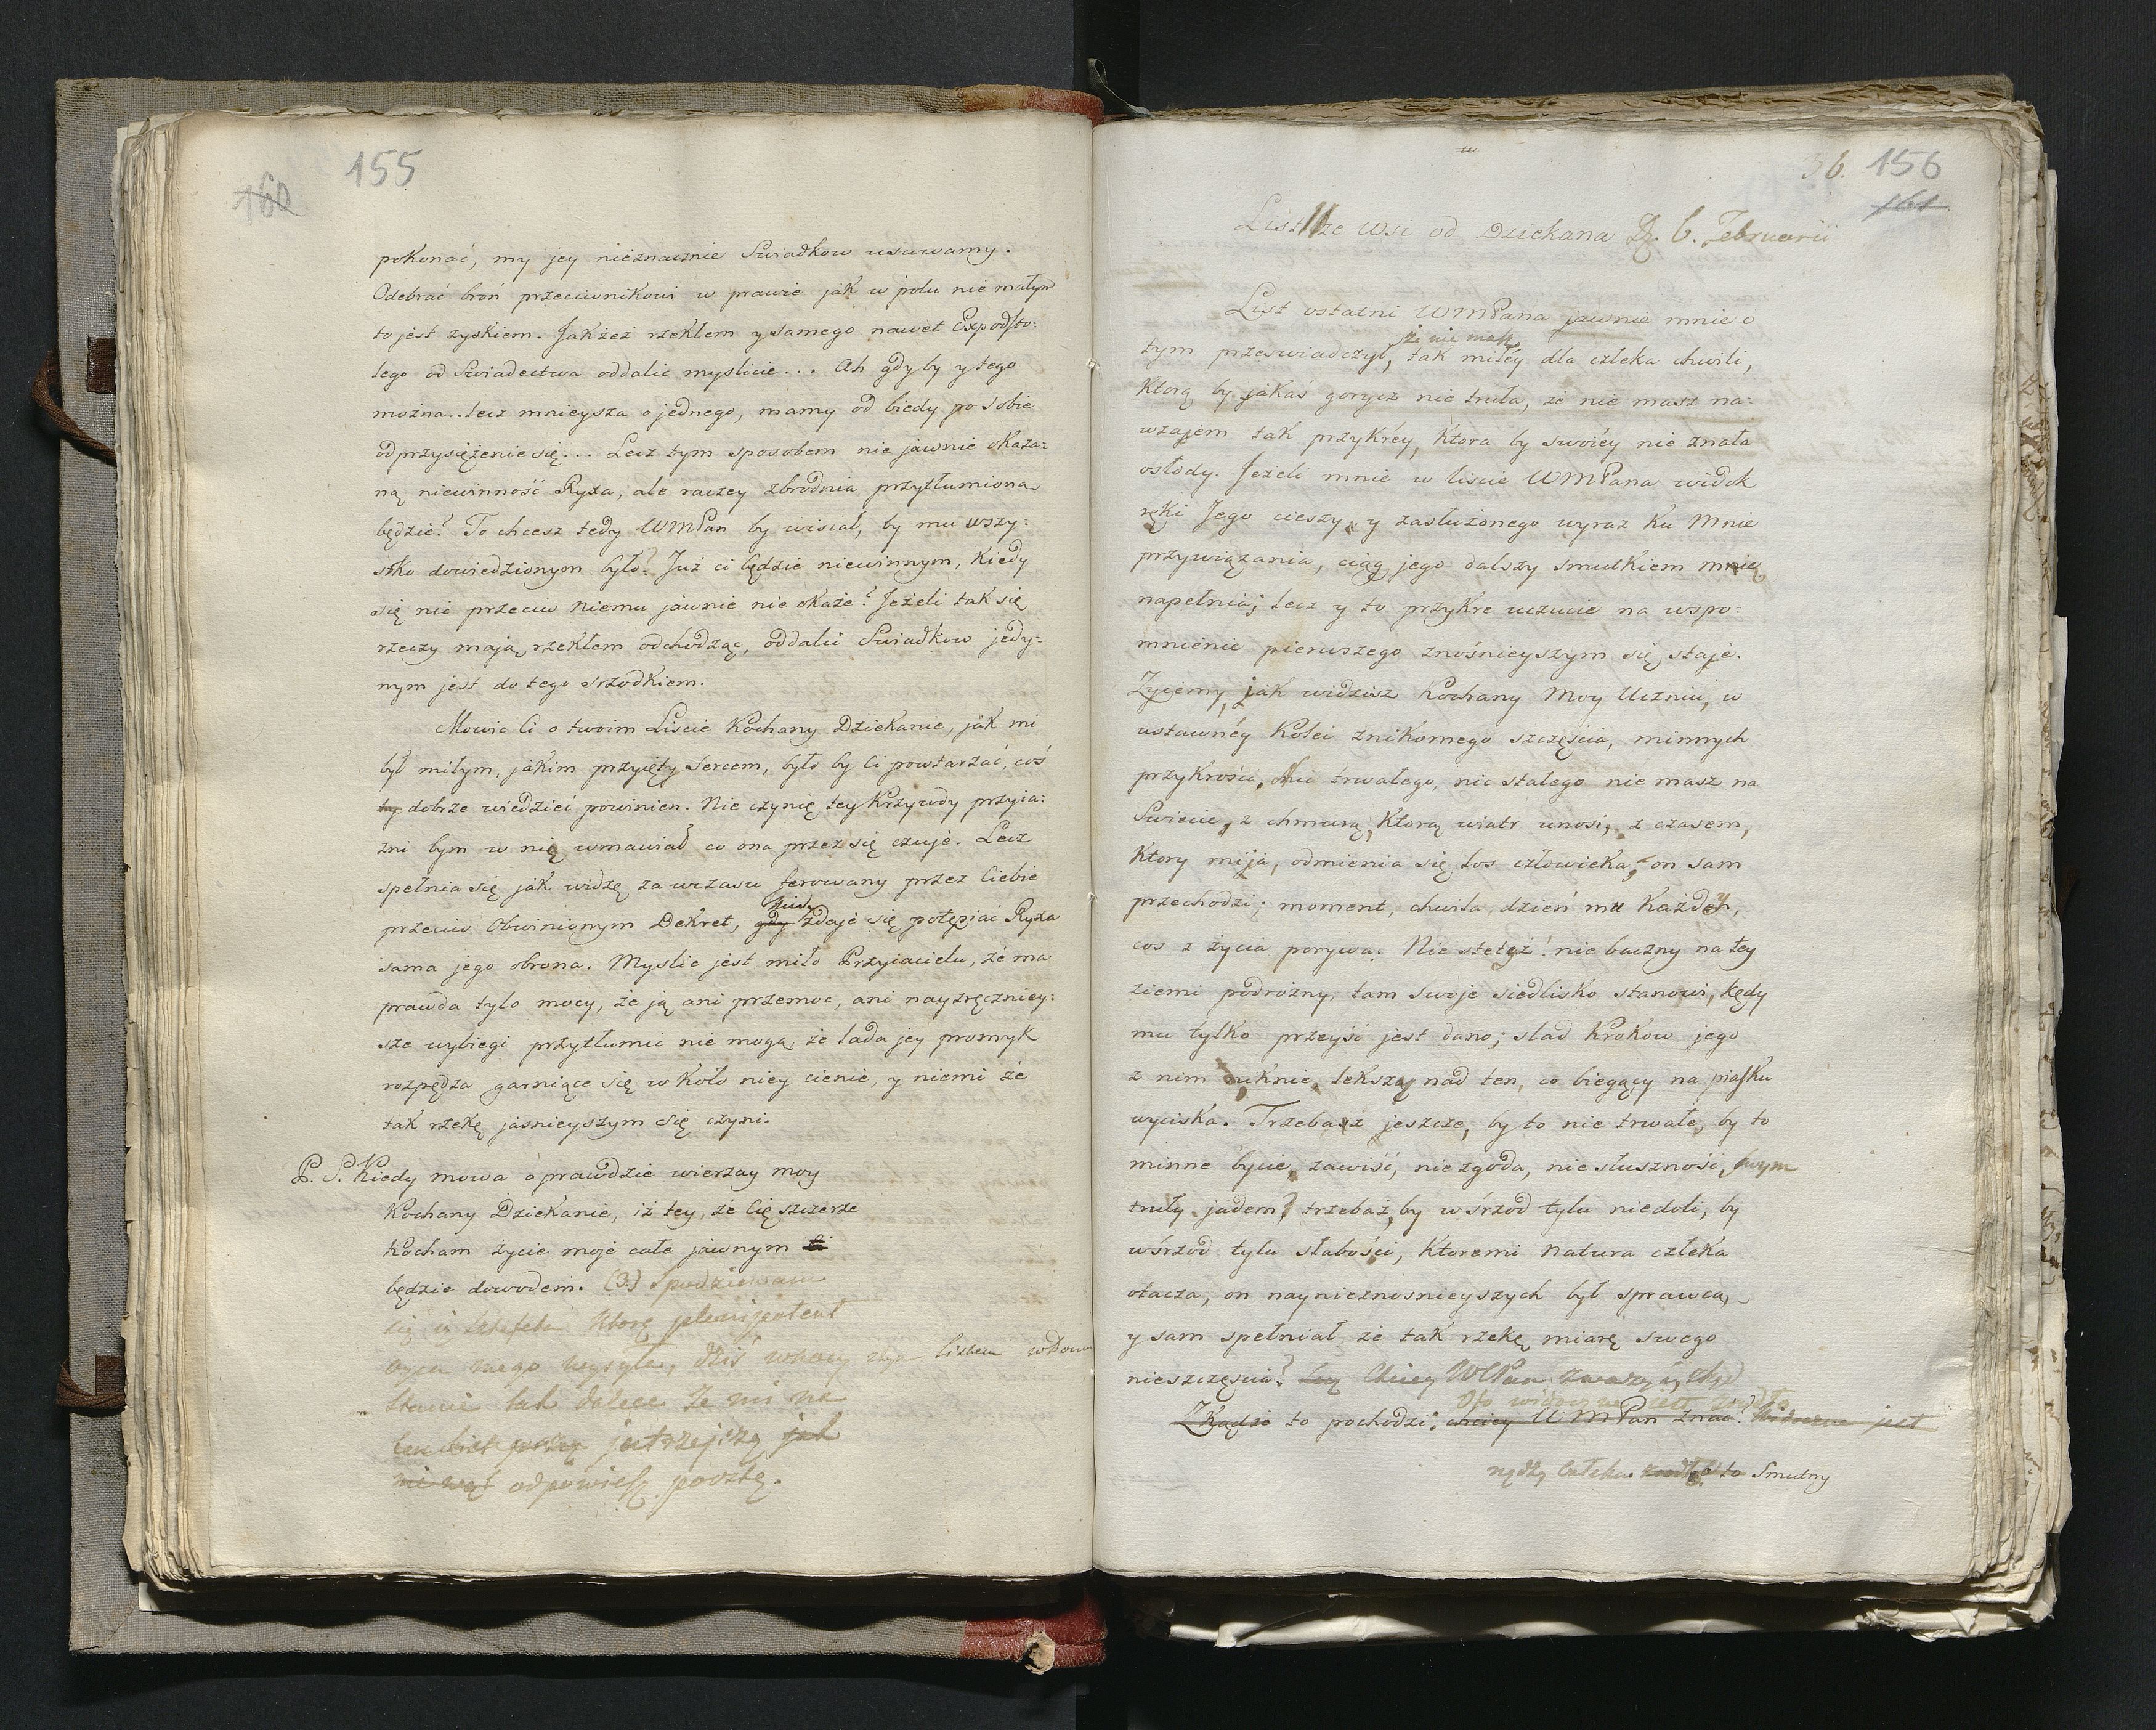 155
160
pokonać, my jey nieznacznie Swiadkow usuwamy.
Odebrać broń przeciwnikowi w prawie jak w polu nie małym
to jest zyskiem. Jakżeż rzekłem y samego nawet Expodsto:
lego od Swiadectwa oddalic myslicie... Ah gdyby y tego
można.. lecz mnieysza o jednego, mamy od biedy po sobie
odprzysiężenie się... Lecz tym sposobem nie jawnie okaza:
ną niewinność Ryxa, ale raczey zbrodnia przytłumiona
będzie? To chcesz tedy WMPan by wisiał, by mu wszy:
stko dowiedzionym było? Już ci będzie niewinnym, kiedy
się nic przeciw niemu jawnie nie okaże? Jeżeli tak się
rzeczy mają, rzekłem odchodząc, oddalić Swiadkow jedy:
nym jest do tego srzodkiem.
Mowic Ci o twoim Liscie Kochany Dziekanie, jak mi
był miłym, jakim przyięty sercem, było by Ci powtarzać, coś
ty dobrze wiedzieć powinien. Nie czynię tey krzywdy przyia:
zni bym w nię wmawiał co ona przez się czuje. Lecz
spełnia się jak widzę zawczasu ferowany przez Ciebie
przeciw Obwinionym Dekret, gdy kiedy zdaje się potępiać Ryxa
sama jego obrona. Myslic jest miło Przyiacielu, że ma
prawda tyło mocy, że ją ani przemoc, ani nayzręczniey:
sze wybiegi przytłumic nie mogą, że lada jey promyk
rozpędza garniące się w koło niey cienie, y niemi że
tak rzekę jasnieyszym się czyni.
P. S. Kiedy mowa o prawdzie wierzay moy
Kochany Dziekanie, iż tey, że Cię szczerze
kocham życie moje całe jawnym
będzie dowodem. (3.) Spodziewam
się iż sztafeta którę plenipotent
oyca mego wysyła, dziś w nocy
stanie tak dalece że mi na
jutrzejszą jak
odpowiesz pocztę.
36. 156
161
List II ze Wsi od Dziekana D. 6. Februarii
List ostatni WMPana jawnie mnie o
tym przeswiadczył, że nie masz tak miłéy dla człeka chwili,
ktorą by jakaś gorycz nie truła, że nie masz na:
wzajem tak przykréy, ktora by swoiéy nie znała
osłody. Jeżeli mnie w liscie WMPana widok
ręki Jego cieszy, y zasłużonego wyraz ku Mnie
przywiązania, ciąg jego dalszy smutkiem mnię
napełnia; lecz y to przykre uczucie na wspo:
mnienie pierwszego znośnieyszym się staje.
Zyiemy, jak widzisz Kochany Moy Uczniu, w
ustawnéy kolei znikomego szczęścia, minnych
przykrości. Nic trwałego, nic stałego nie masz na
Swiecie, z chmurą, ktorą wiatr unosi, z czasem,
ktory mija, odmienia się los człowieka, on sam
przechodzi; moment, chwila, dzień mu każdy,
cos z życia porywa. Nie stetyż! nie baczny na tey
ziemi podróżny, tam swoje siedlisko stanowi, kędy
mu tylko przeyść jest dano; slad krokow jego
z nim niknie, lekszy nad ten, co biegący na piasku
wyciska. Trzebaż jeszcze, by to nie trwałe, by to
minne bycie, zawiść, niezgoda, niesłuszność, swym
truły jadem? trzebaż, by w śrzod tylu niedoli, by
wśrzod tylu słabości, ktoremi Natura człeka
otacza, on nayniéznosnieyszych był sprawcą,
y sam spełniał że tak rzekę miarę swego
nieszczęscia? Chciey WMPan zważyć, zkąd
Zkądże to pochodzi; chciey WMPan znac? Widoczne jest
nędzy człeka źródło to Smutny